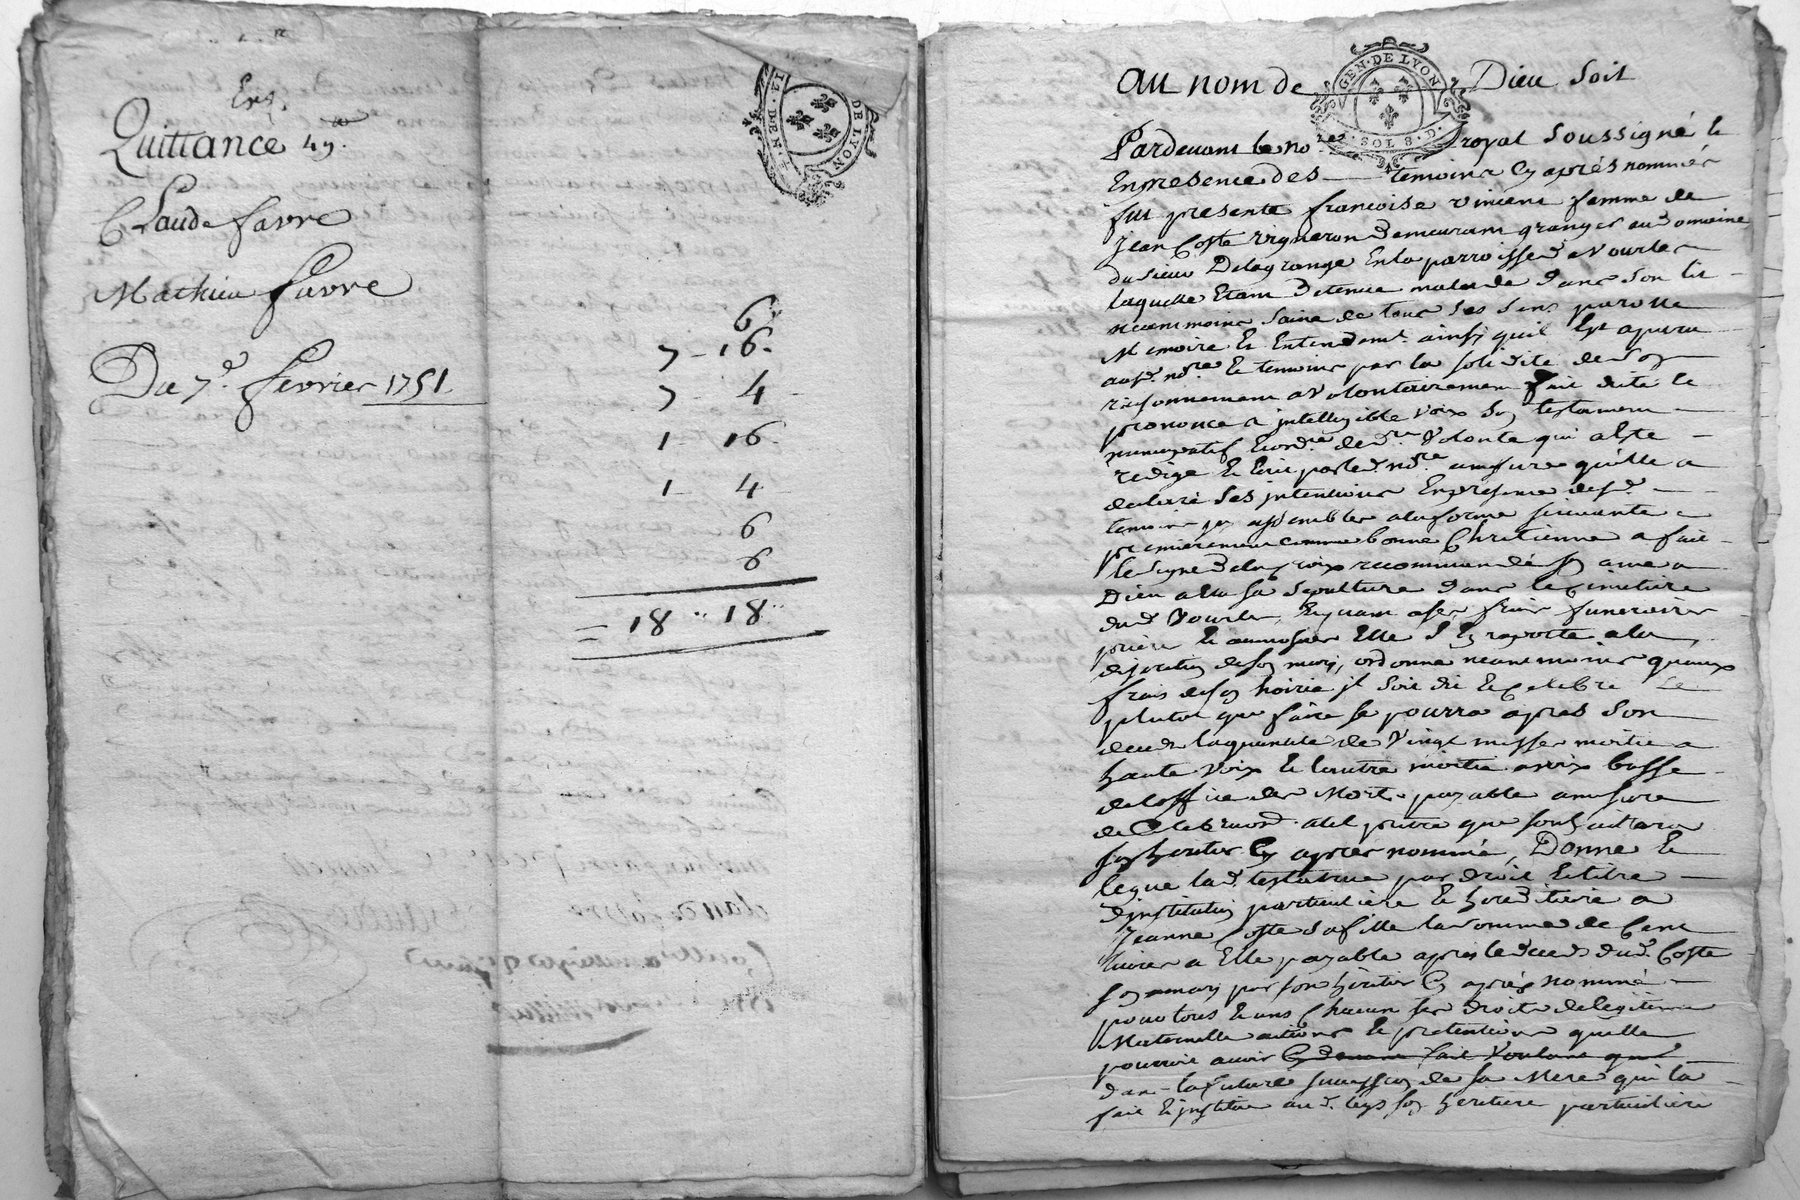 Enq.
Quittance 49.
Claude favre
Mathieu favre
Du 7.e fevrier 1751
6
7 - 16.
7 - 4
1 - 16
1 - 4
6
6
= 18 .. 18 ..
GEN. DE LYON
DE LYON
SOLS. D.
au nom de Dieu soit
Pardevant le no.re royal soussigné &
En presence des temoins cy aprés nommés
fut presente francoise vincent femme de
jean Coste vigneron demeurant granger au domaine
du sieur Delagrange En la parroisse de Vourles
laquelle Etant detenue malade dans son lit
neanmoins saine de tous ses sens parolle
Memoire Et Entendem.t ainsy quil Est aparu
aud. no.re Et temoins par la solidité de son
raisonnement a volontairement fait dicté &
prononcé a jntelligible voix son testament
nuncupatif de volonté qui a Esté
redigé Et Ecrit par led. no.re amesure quelle a
declaré ses jntentions En presence desd.
temoins assemblés a la forme suivante
premierement comme bonne Chretienne a fait
le signe de la croix recommandé son ame a
Dieu sa sepulture dans le Cimetiere
dud. Vourles, Equant a ses frais funeraires
priere Et aumosnes Elle s'En raporte a la
discretion de son mary, ordonne neanmoins quaux
frais de son hoirie jl soit dit Et Celebré le
plutot que faire se pourra apres son
deceds la quantité de Vingt messes moitié a
haute voix Et lautre moitié a voix basse
de loffice des Morts payable amesure
de Celebraon. a tel pretre que souhaitera
son heritier Cy apres nommé, Donne Et
legue lad. testatrice par droit Et titre
djnstitution particuliere Et hereditaire a
Jeanne Coste sa fille la somme de Cent
livres a Elle payable apres le deceds dud. Coste
son mary par son heritier Cy aprés nommé
pour tous Et uns Chacun ses droits de legitime
Maternelle actions Et pretentions quelle
pourroit avoir
dans la future succession de sa Mere qui la
fait Et jnstitue aud. legs son heritiere particuliere